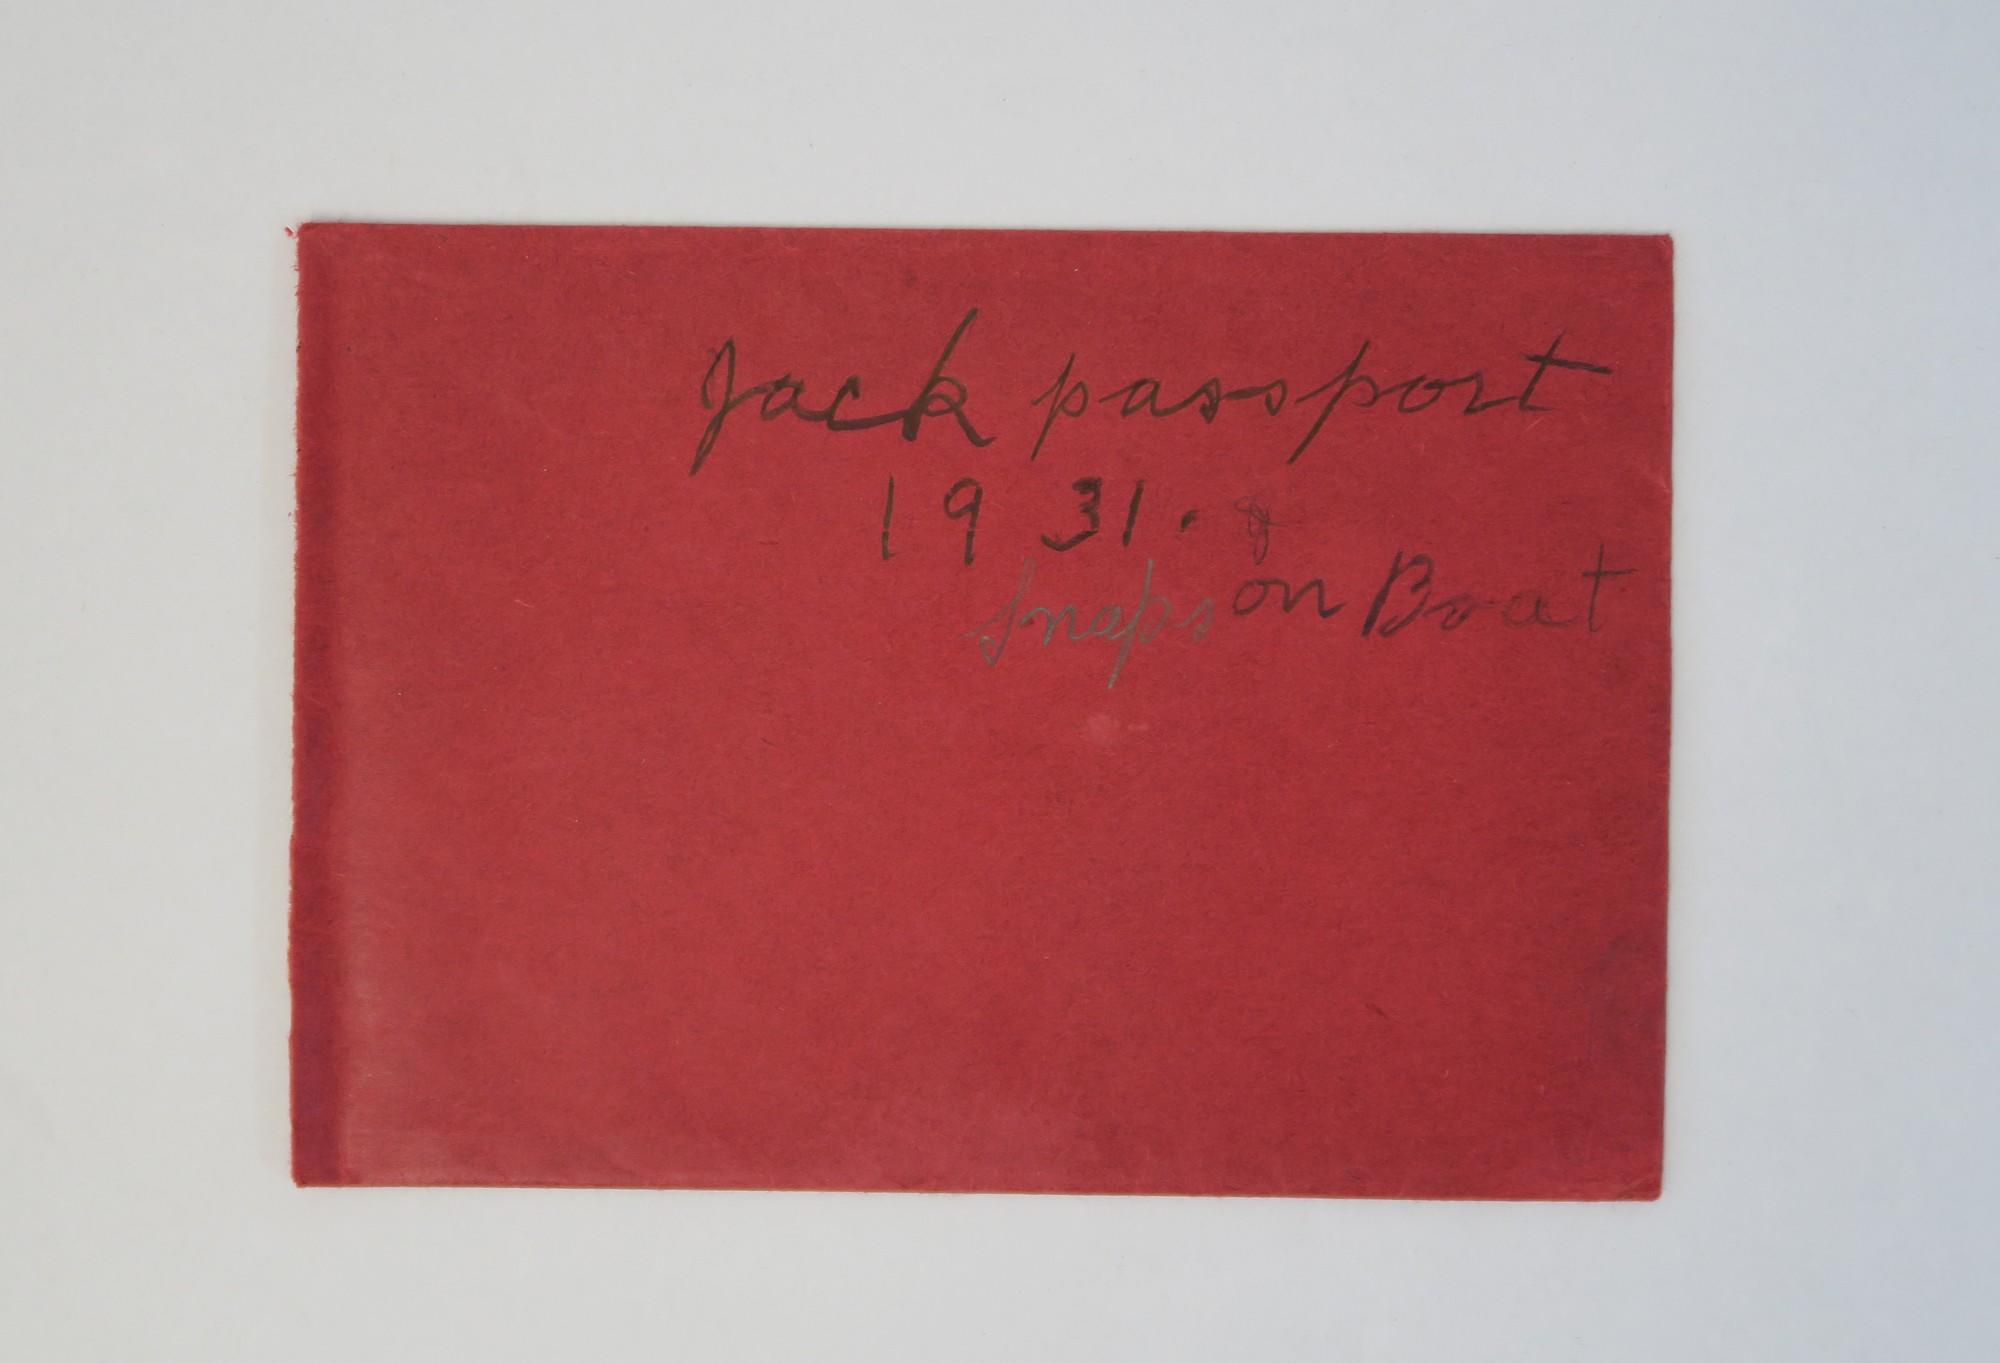 Jack passport
1931. &
Snaps on Boat